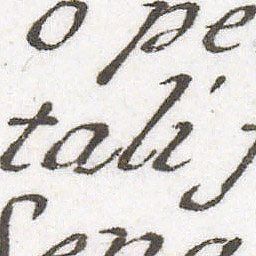 o pe
tali
Sena